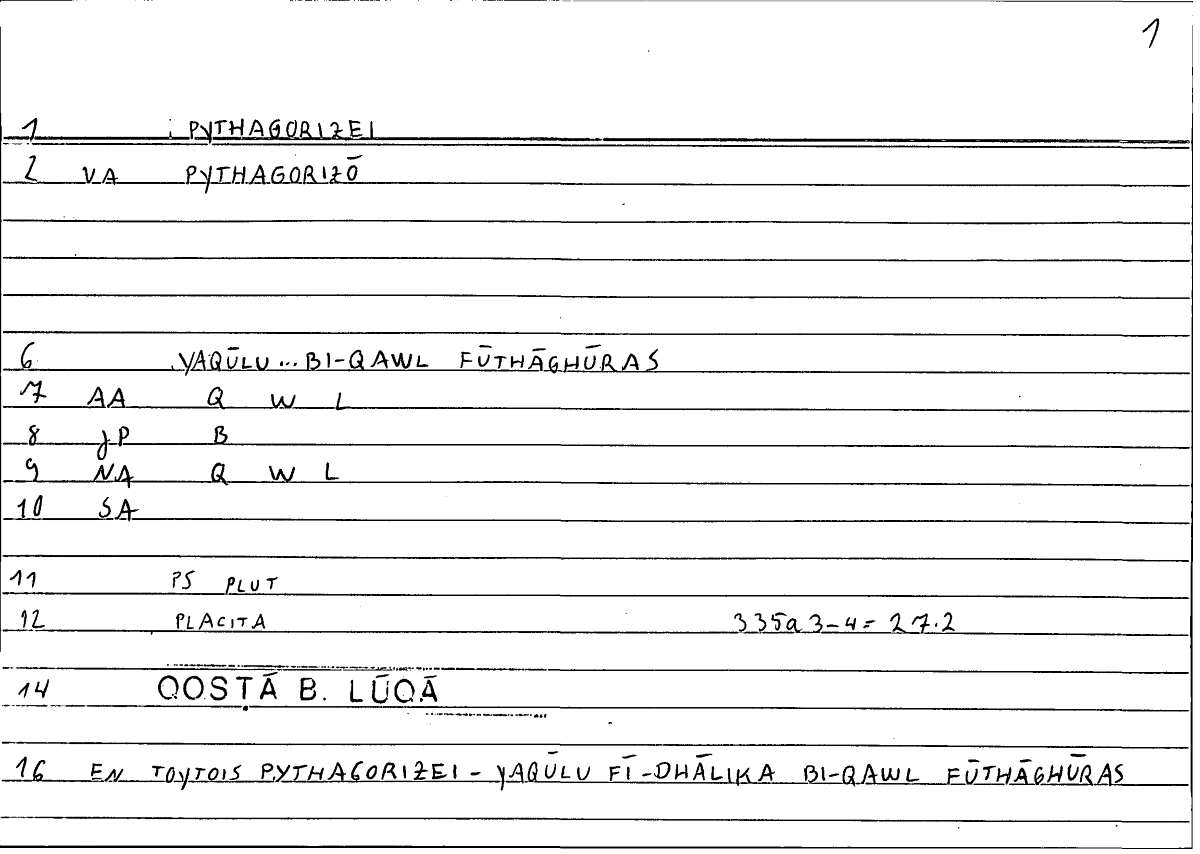 1
1 PYTHAGORIZEI
2 VA PYTHAGORIZŌ
6 YAQŪLU...BI-QAWL FŪTHĀGHŪRAS
7 AA Q W L
8 JP B
9 NA Q W L
10 SA
11 PS PLUT
12 PLACITA 335a3-4= 27.2
14 QOSṬĀ B. LŪQĀ
16 EN TOYTOIS PYTHAGORIZEI - YAQŪLU FĪ-DHĀLIKA BI-QAWL FŪTHĀGHŪRAS